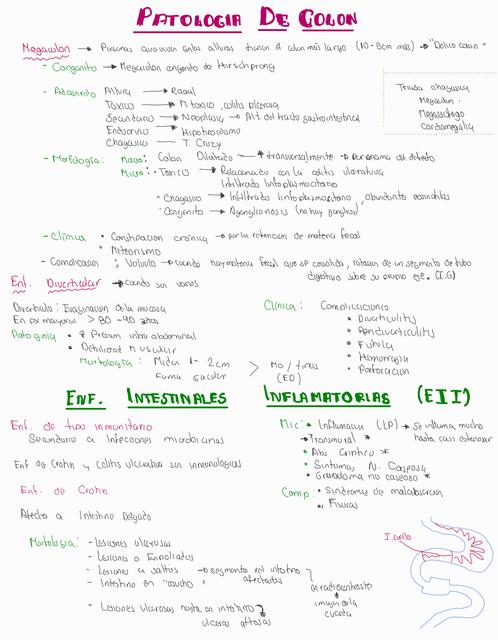 PATOLOGIA DE COLON
Megacolon → Personas que viven en las alturas tienen el colon más largo (10-8cm más) → "Dolico colon"
- Congenito → Megacolon congenito de Hirschprong
- Adquirido
Altura → Racial
Toxico → M. toxico, colitis ulcerosa
Secundario → Neoplasia → Alt del tracto gastrointestinal
Endocrino → Hipotiroidismo
Chagasico → T. Cruzy
Triada chagasica
Megacolon
Megaesofago
Cardiomegalia
- Morfología: Macro: Colon Dilatado → transversalmente
Micro: Toxico → Relacionado con la colitis ulcerativa
Infiltrado linfoplasmocitario
· Chagasico → Infiltrado linfoplasmocitario, abundante eosinofilos
· Congenito → Aganglionosis (no hay ganglios)
- Clínica • Constipacion crónica → por la retencion de materia fecal
• Meteorismo
- Complicacion : Volvulo → cuando hay materia fecal que se consolida, rotacion de un segmento de tubo
digestivo sobre su propio eje. (I.G)
Enf. Diverticular → cuando son varios
Diverticulo: Evaginacion de la mucosa
En px mayores > 80-90 años
Patogenia • ↑ Presion intra abdominal
• Debilidad muscular
Morfología: Miden 1-2cm
Forma sacular
> Mo/tinas
(ED)
Clínica: Complicaciones
• Diverticulitis
• Peridiverticulitis
• Fistula
• Hemorragia
• Perforacion
ENF. INTESTINALES INFLAMATORIAS (EII)
Enf. de tipo inmunitario
Secundario a infecciones microbianas
Enf de Crohn y colitis ulcerativa son inmunologicas
Mic: • Inflamacion (LP) → Se inflama mucho
→ Transmural * hasta casi estenosar
• Abs Criptico *
• Granuloma no caseoso *
Comp. • Sindrome de malabsorcion
• Fisuras
Enf. de Crohn
Afecta a Intestino Delgado
Morfología: - Lesiones ulcerosas
- Lesiones a saltos → segmento del intestino
afectados
- Lesiones ulcerosas hasta en intestino
ulceras aftosas
en radiocontraste
imagen de la
cuerda